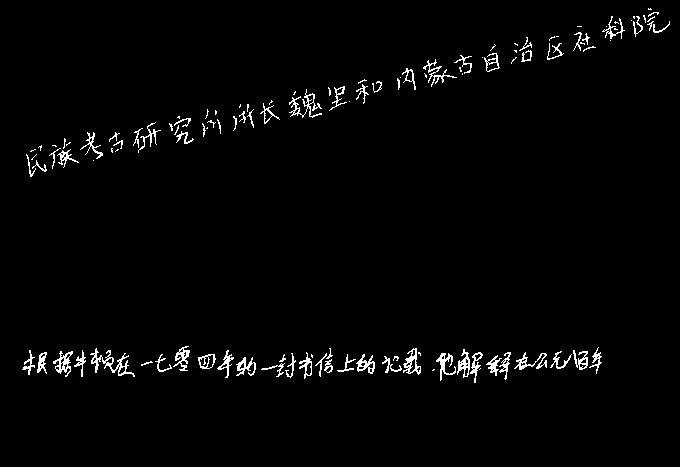 民族考古研究所所长魏坚和内蒙古自治区社科院
根据牛顿在一七零四年的一封书信上的记载，他解释在公元八百年